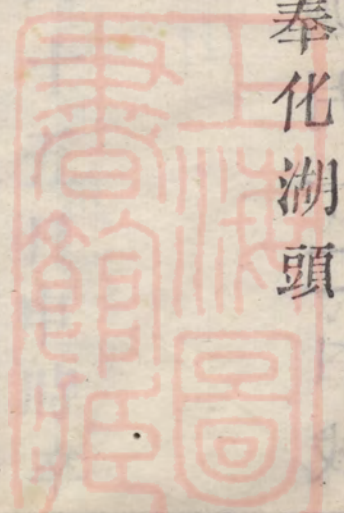 奉化湖頭
上海圖
書館藏